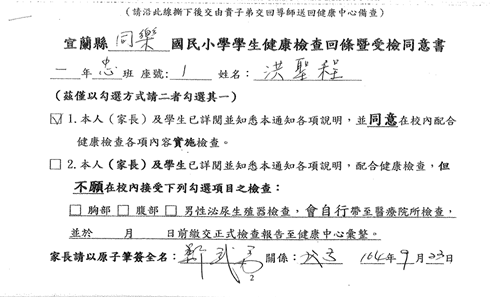 （請沿此線撕下後交由貴子弟交回導師送回健康中心備查）
宜蘭縣 同樂 國民小學學生健康檢查回條暨受檢同意書
一 年 忠 班 座號：1 姓名：洪聖程
（茲僅以勾選方式請二者勾選其一）
☑ 1.本人（家長）及學生已詳閱並知悉本通知各項說明，並同意在校內配合
健康檢查各項內容實施檢查。
□ 2.本人（家長）及學生已詳閱並知悉本通知各項說明，配合健康檢查，但
不願在校內接受下列勾選項目之檢查：
□ 胸部 □ 腹部 □ 男性泌尿生殖器檢查，會自行帶至醫療院所檢查，
並於 月 日前繳交正式檢查報告至健康中心彙整。
家長請以原子筆簽全名： 關係： 104年9月23日
2